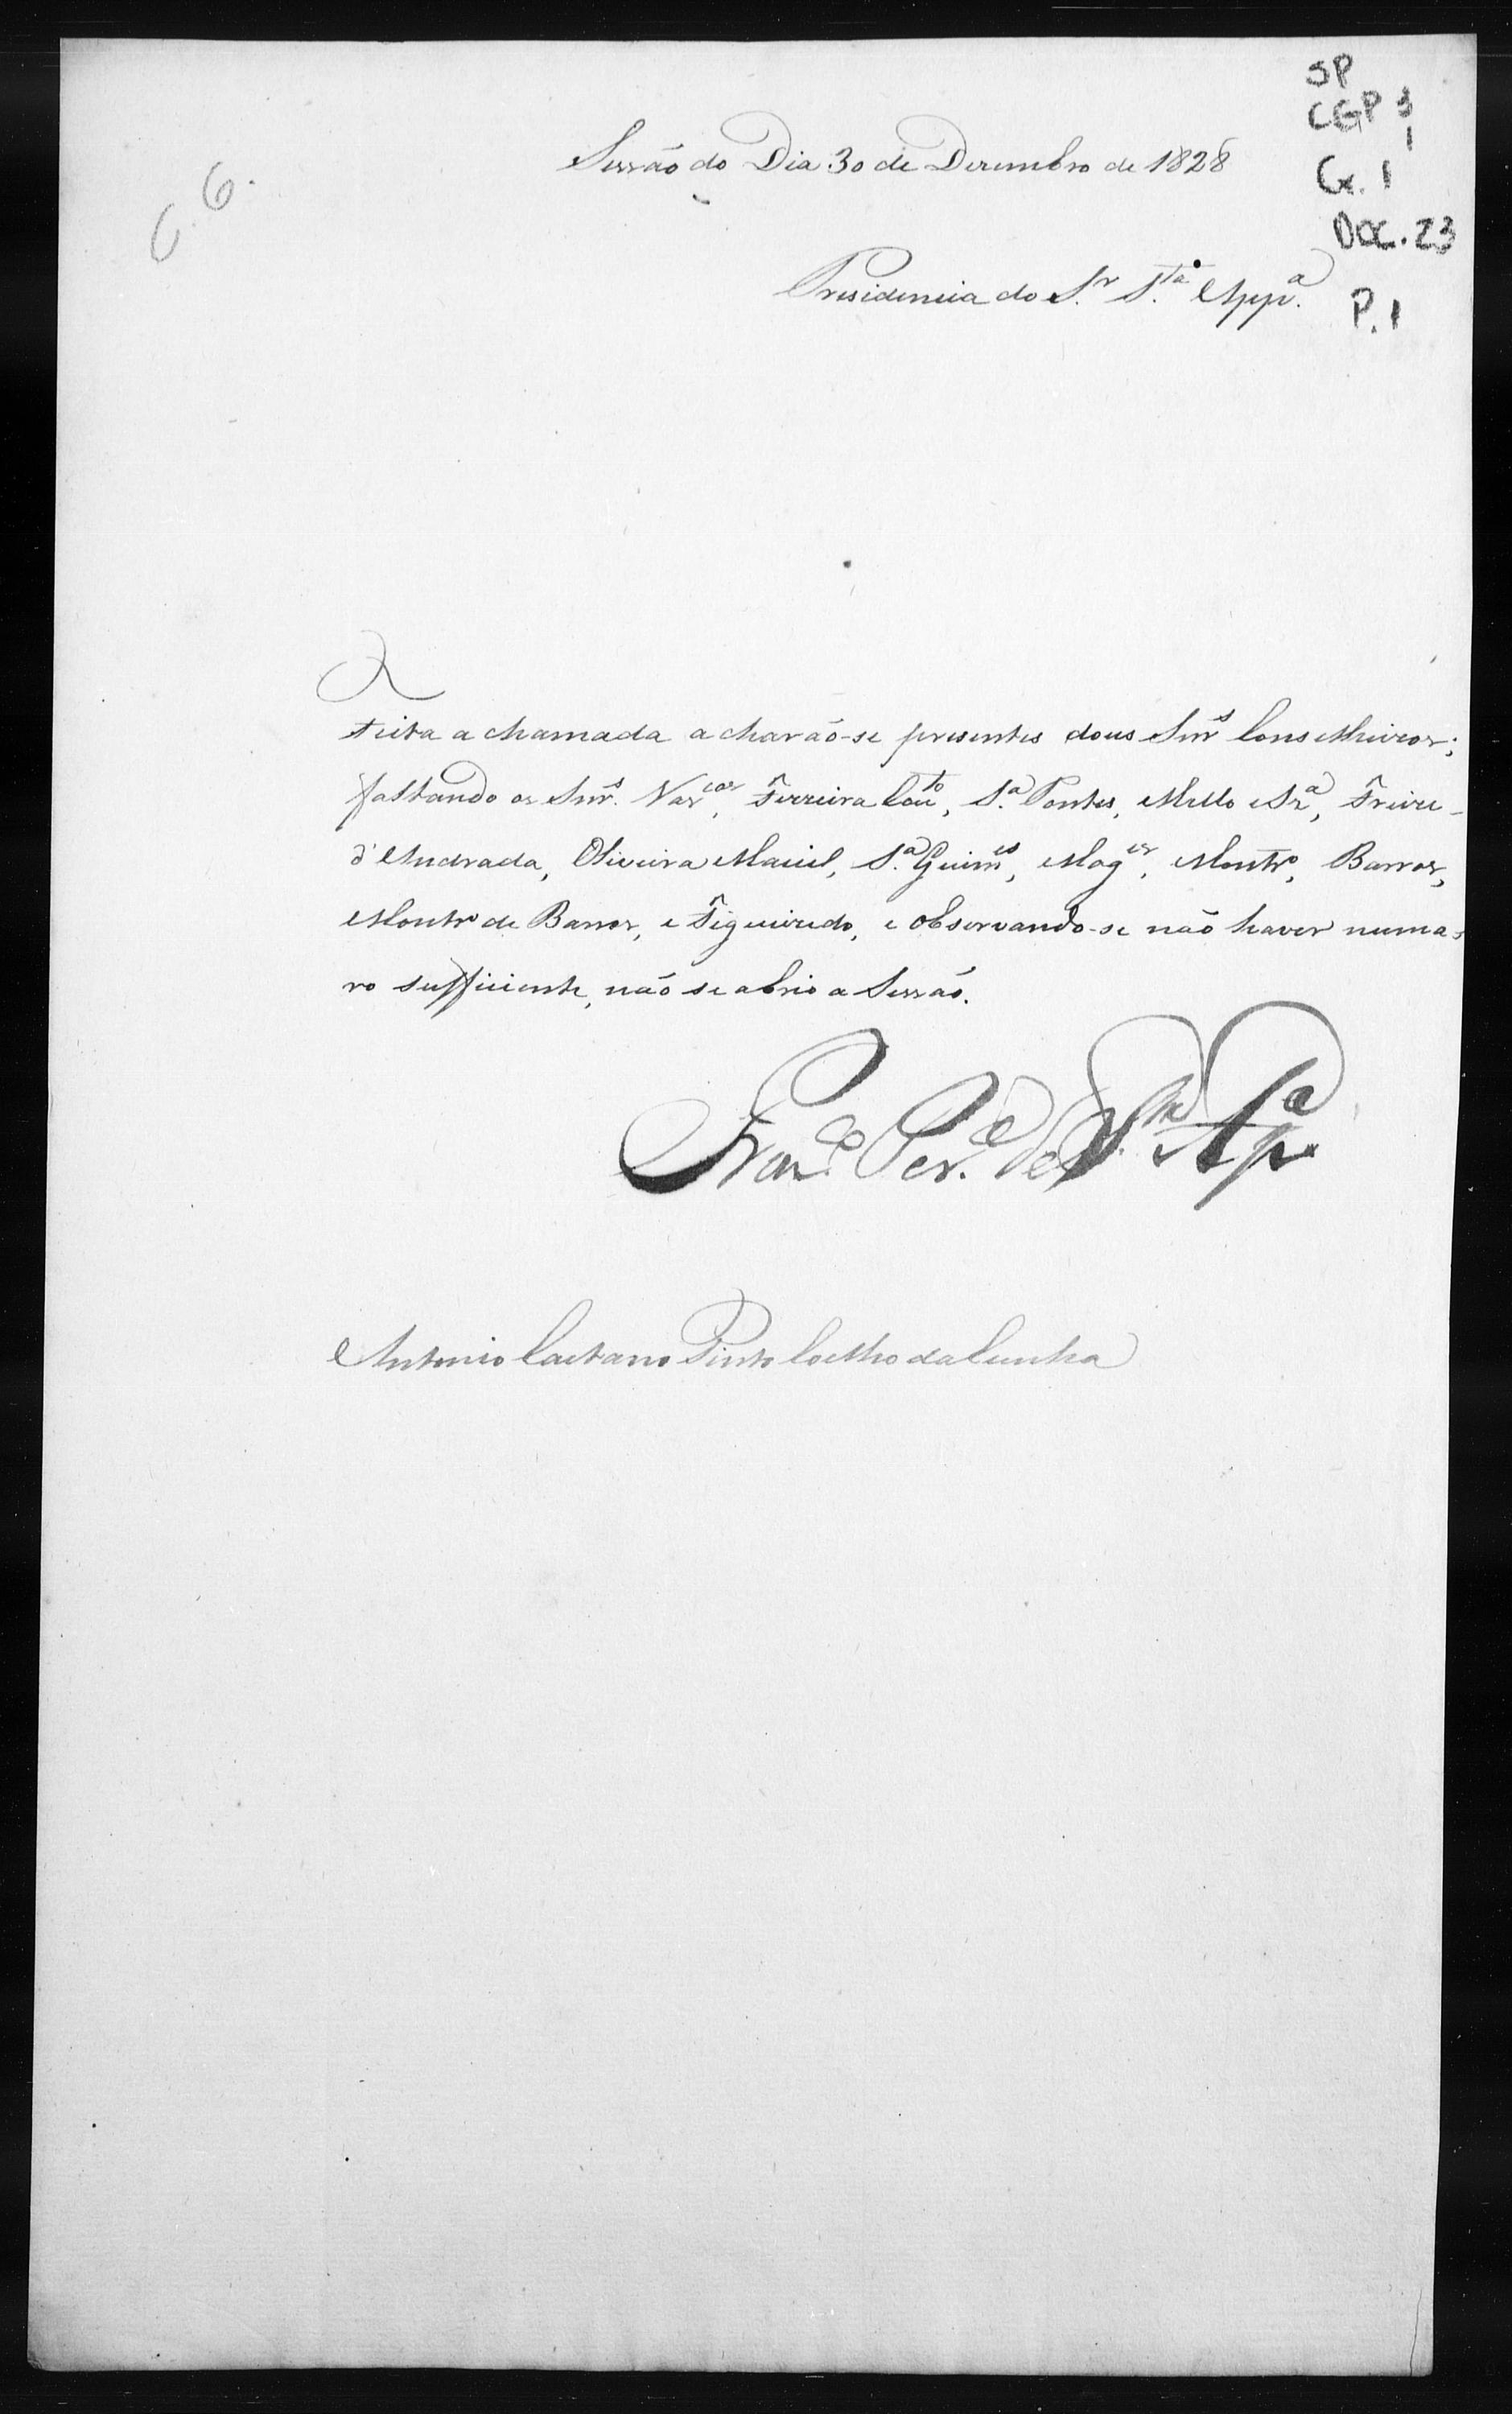 SP
CGP 3
1
Cx. 1
DOC. 23
P. 1
6.
Sessão do Dia 30 de Dezembro de 1828
Presidencia do S.r S.ta App.a
Feita a chamada acharão-se presentes dous Snr.s Conselheiros;
faltando os Snr.s Vas.cos, Ferreira Cou.to, S.a Pontes, Mello e Sz.a, Freire
d'Andrada, Oliveira Maciel, S.a Guim.es, Mag.es, Montr.o, Barros,
Montr.o de Barros, e Figueiredo, e observando-se não haver nume-
ro sufficiente, não se abrio a Sessão.
Fran.co Per.a de S.ta Ap.a
Antonio Caetano Pinto Coelho da Cunha